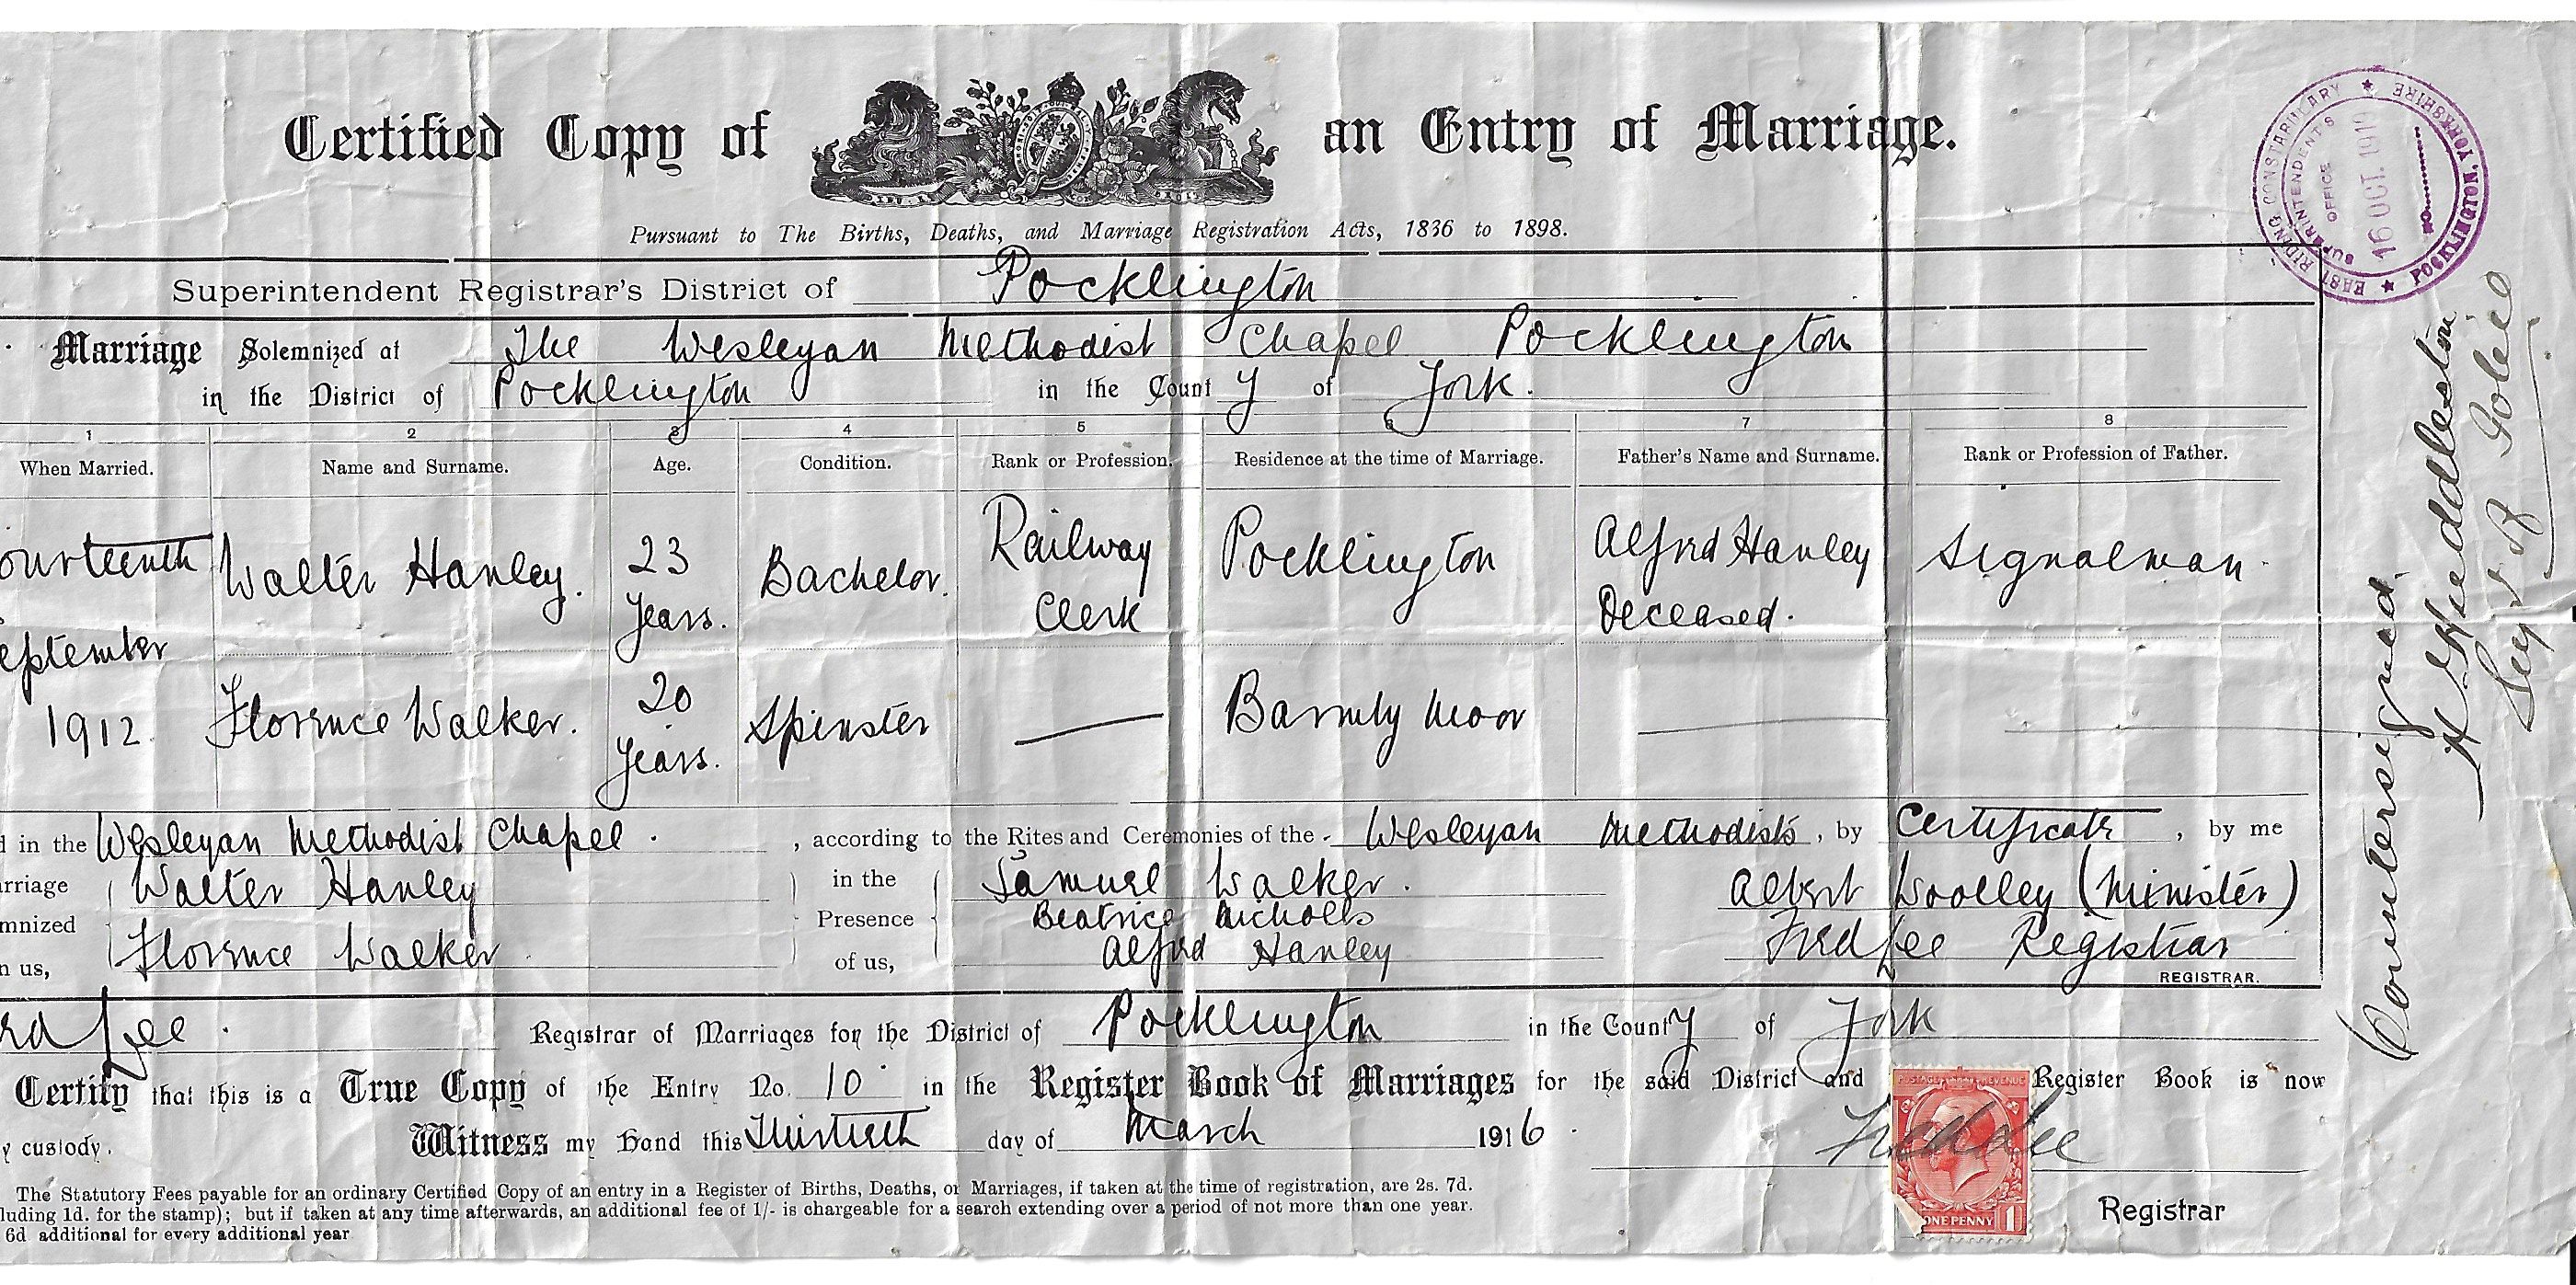 Certified Copy of an Entry of Marriage.
Pursuant to The Births, Deaths, and Marriage Registration Acts, 1836 to 1898.
EAST RIDING CONSTABULARY ★ POCKLINGTON, YORKSHIRE ★
SUPERINTENDENT'S OFFICE
16 OCT. 191
NO
Superintendent Registrar's District of Pocklington
Marriage Solemnized at The Wesleyan Methodist Chapel Pocklington
in the District of Pocklington in the County of York.
1 2 3 4 5 6 7 8
When Married. Name and Surname. Age. Condition. Rank or Profession. Residence at the time of Marriage. Father's Name and Surname. Rank or Profession of Father.
ourteenth Walter Hanley. 23 Years. Bachelor. Railway Clerk Pocklington Alfred Hanley Deceased. Signalman.
eptember
1912. Florence Walker. 20 Years. Spinster — Barmby Moor
d in the Wesleyan Methodist Chapel. , according to the Rites and Ceremonies of the Wesleyan Methodists, by Certificate, by me
arriage Walter Hanley in the Samuel Walker. Albert Woolley (Minister)
mnized Presence Beatrice Nicholls
n us, Florence Walker of us, Alfred Hanley Fred Lee Registrar
REGISTRAR.
rd Lee. Registrar of Marriages for the District of Pocklington in the County of York
Certify that this is a True Copy of the Entry No. 10 in the Register Book of Marriages for the said District and Register Book is now
y custody. Witness my Hand this Thirtieth day of March 1916.
Fred Lee
Registrar
POSTAGE REVENUE
ONE PENNY 1
The Statutory Fees payable for an ordinary Certified Copy of an entry in a Register of Births, Deaths, or Marriages, if taken at the time of registration, are 2s. 7d.
luding 1d. for the stamp); but if taken at any time afterwards, an additional fee of 1/- is chargeable for a search extending over a period of not more than one year.
6d additional for every additional year
Countersigned.
H Huddlestone
Supt of Police